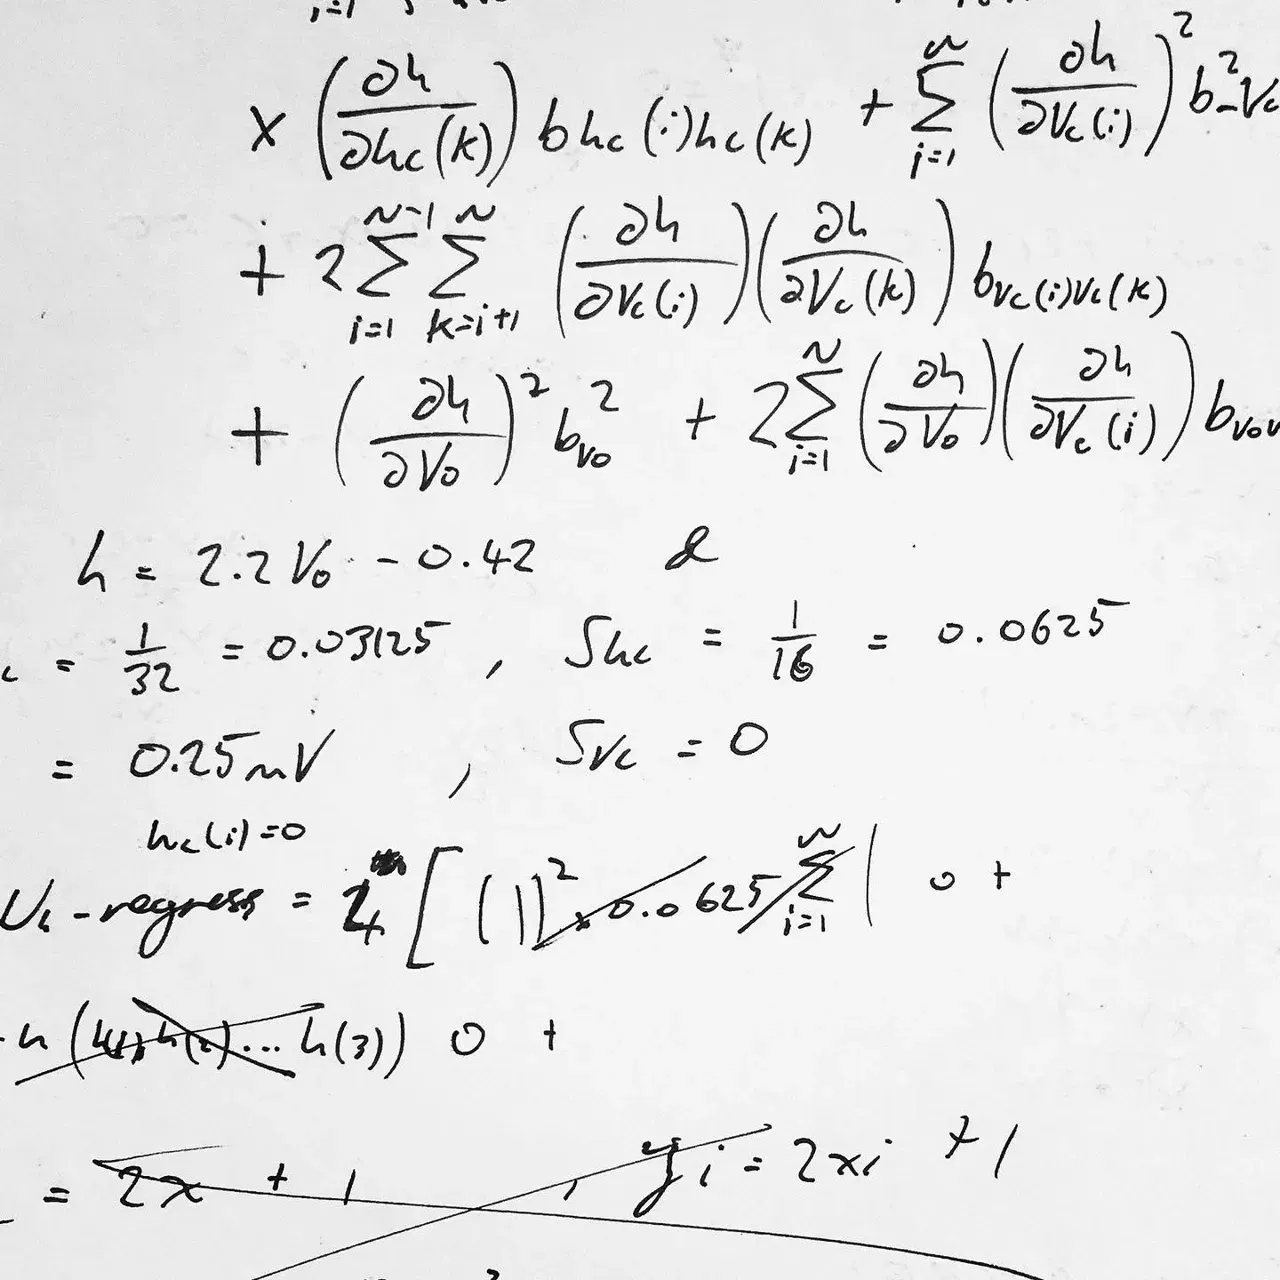 i=1
× (∂h / ∂hc(k)) b hc(i)hc(k) + Σ_{i=1}^{N} (∂h / ∂Vc(i))² b² Vc
+ 2 Σ_{i=1}^{N-1} Σ_{k=i+1}^{N} (∂h / ∂Vc(i)) (∂h / ∂Vc(k)) b_{Vc(i)Vc(k)}
+ (∂h / ∂Vo)² b²_{Vo} + 2 Σ_{i=1}^{N} (∂h / ∂Vo) (∂h / ∂Vc(i)) b_{VoV
h = 2.2 Vo - 0.42 &
c = 1/32 = 0.03125 , Shc = 1/16 = 0.0625
= 0.25mV , SVc = 0
hc(i)=0
Uh-regress = [ ( 1 )² × 0.0625 Σ_{i=1}^{N} 0 +
h ( h(2) ... h(3)) 0 +
= 2x + 1 , yi = 2xi + 1
2